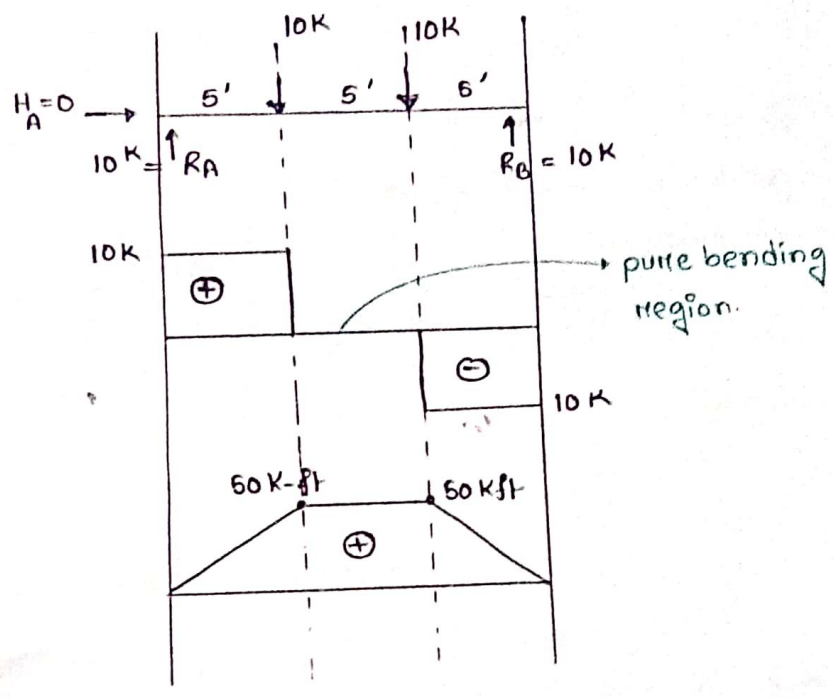 10K
10K
5'
5'
5'
H_A=0
10K=
R_A
R_B = 10K
10K
⊕
pure bending
region.
⊖
10K
50 K-ft
50 Kft
⊕